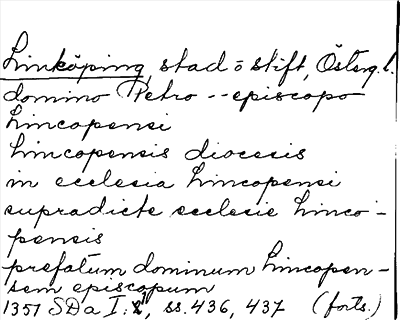 Linköping, stad o stift, Östergl.
domino Petro -- episcopo
Lincopensi
Lincopensis diocesis
in ecclesia Lincopensi
supradicte ecclesie Linco-
pensis
prefatum dominum Lincopen-
sem episcopum
1351 SDa I:2, ss. 436, 437 (forts.)